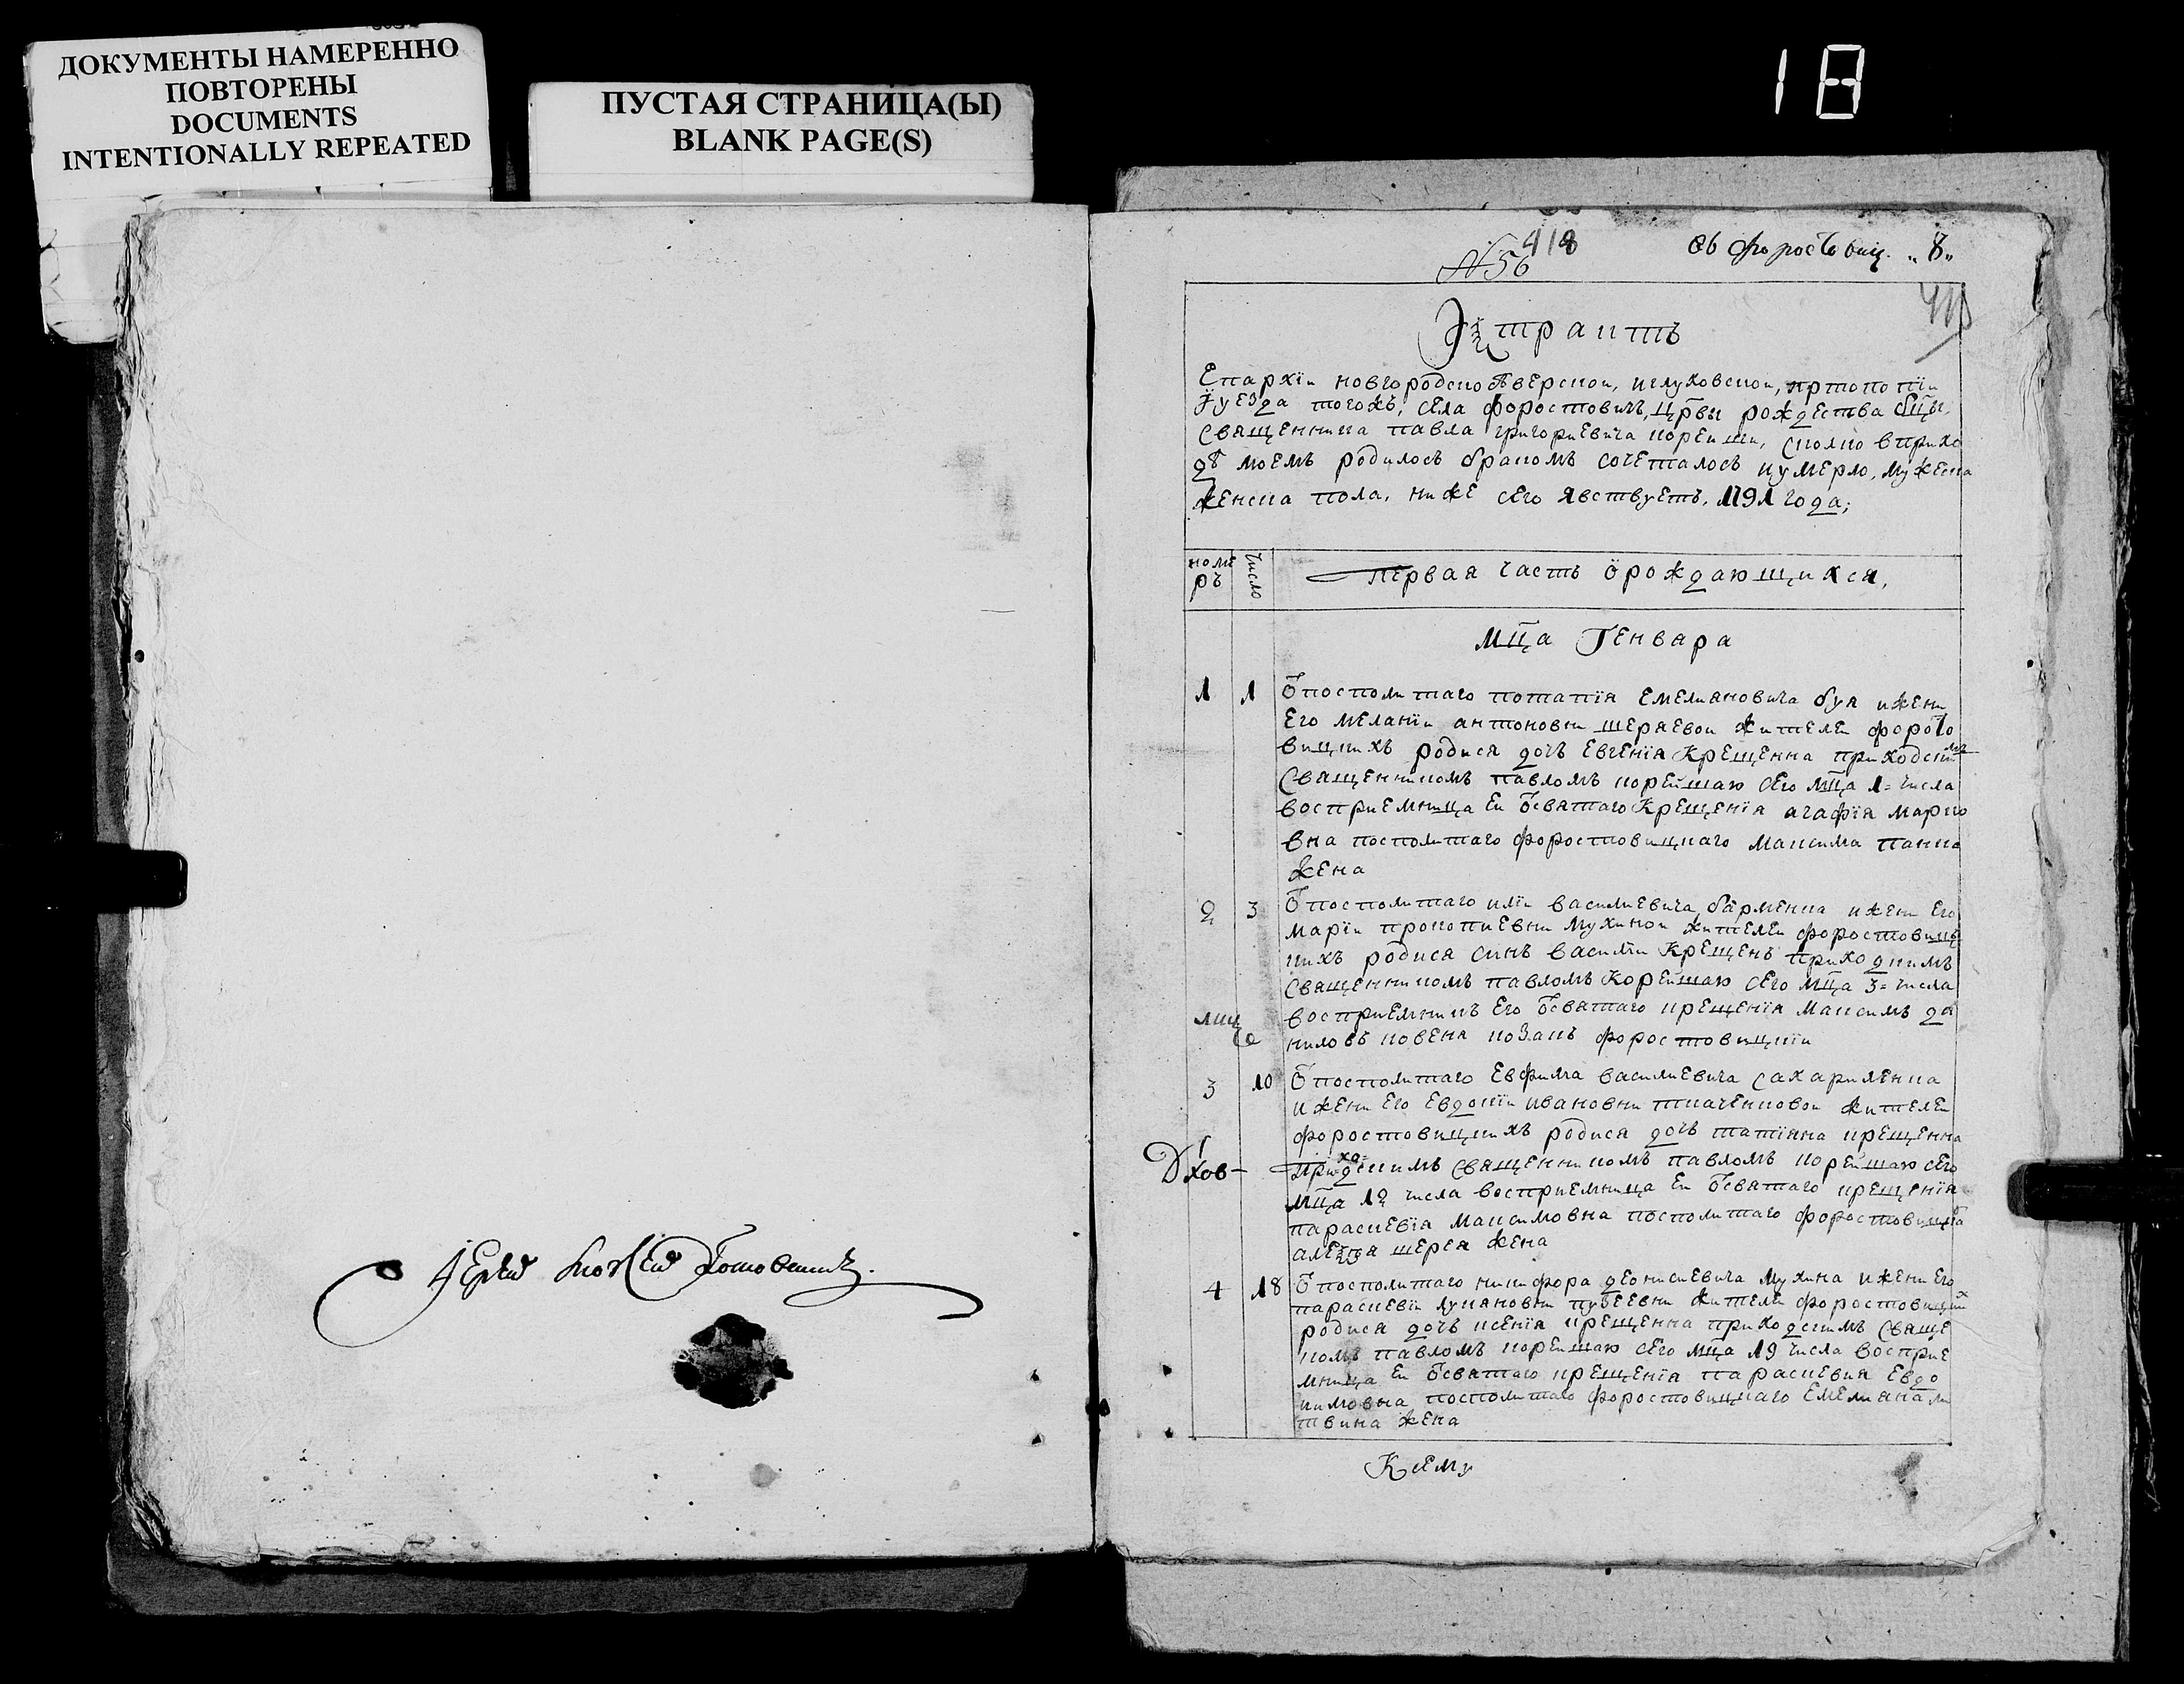 ДОКУМЕНТЫ НАМЕРЕННО
ПОВТОРЕНЫ
DOCUMENTS
INTENTIONALLY REPEATED
ПУСТАЯ СТРАНИЦА(Ы)
BLANK PAGE(S)
18
№ 56
418
форостовиц. „8„
Еѯтрактъ
Епархїи новгородскоѣверской, иглуховской, пртопопїи
ꙋуезда тогожъ, села форостовичъ, црвы рождества бцы,
священника павла григориевича корейши, сколко вприхо
дѣ моемъ родилось бракомъ сочеталось иумерло, мужеска
женска пола, ниже сего явствуетъ, 1791 года;
номе
ръ
число
первая часть ѡрождающихся,
Мца Генвара
1 1 Ѿпосполитаго потапїя емелиановича буя ижени
его меланїи антоновни шеряевой жителей форосто
вицкихъ родися дочъ евгенїя крещенна приходским
священникомъ павломъ корейшаю сего мца 1= числа
восприемница ей ѿсвятаго крещенїя агафїя марко
вна посполитаго форостовицкаго максима панка
жена
2 3 Ѿпосполитаго илїи василиевича бармѣнка ижени его
марїи прокопиевни мухиной жителей форостовиц
кихъ родися синъ василїй крещенъ приходкимъ
священникомъ павломъ корейшаю сего мца 3= числа
восприемникъ его ѿсвятаго крещенїя максимъ да
ниловъ ковеня козакъ форостовицкїй
3 10 Ѿпосполитаго евфима василиевича сахарменка
ижени его евдокїи ивановни ткаченковой жителей
форостовицкихъ родися дочъ татїяна крещенна
приходскимъ священникомъ павломъ корейшаю сего
мца 12 числа восприемница ей ѿсвятаго крещенїя
параскевїя максимовна посполитаго форостовицкга
алеѯѣя шерея жена
Дхов-
4 18 Ѿпосполитаго никифора деонисиевича мухина ижени его
параскевїи лукяновни пузѣевни жителей форостовицких
родися дочъ ксенїя крещенна приходскимъ свяще
комъ павломъ корейшаю сего мца 19 числа восприе
мница ей ѿсвятаго крещенїя параскевия евдо
кимовна посполитаго форостовицкаго емелиана ли
твина жена
Ксему